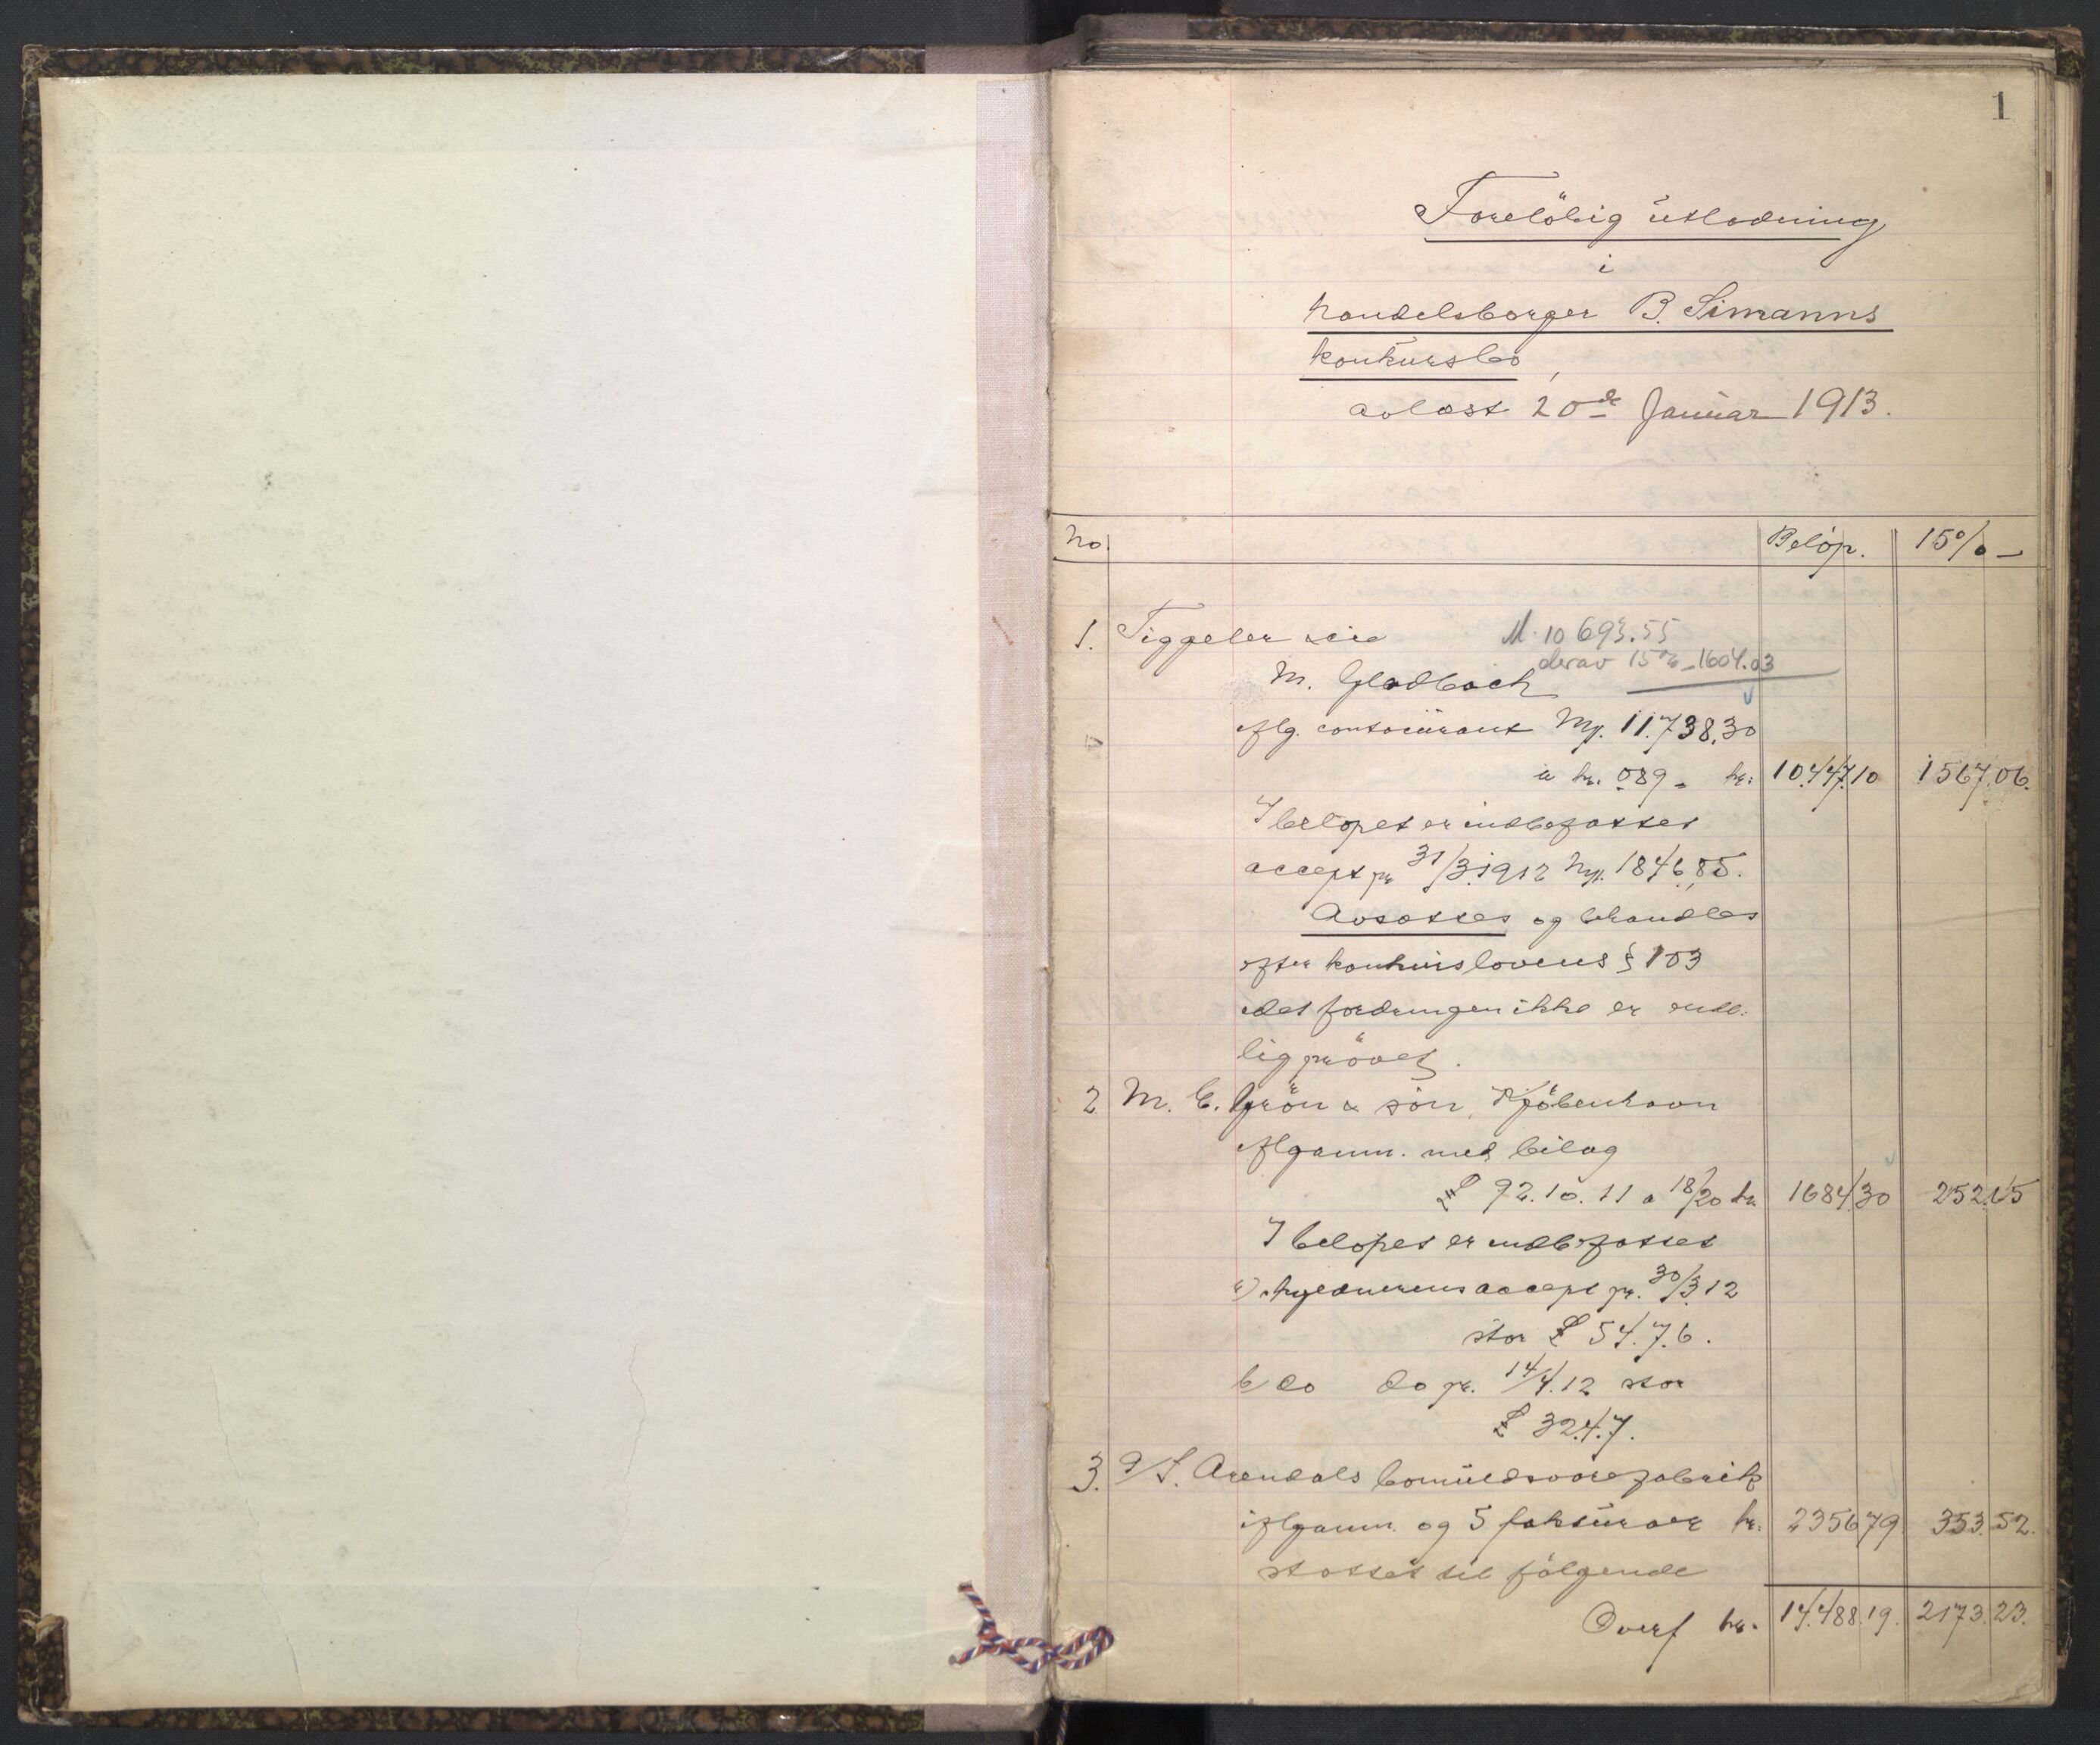 1
Foreløbig utlodning
i
handelsborger B. Simanns
konkursbo,
avlæst 20de Januar 1913.
No. Beløp. 15%
1. Tiggeler
M. 10 693.55
derav 15% - 1604.03
M. Gladbach
iflg. contocurant Mk. 11.738,30
à kr. 089 - kr. 10.447.10 1567.06.
I beløpet er indbefattet
accept pr 31/3.1912 Mk. 1846,85.
Avsættes og behandles
efter konkurslovens § 103
idet fordringen ikke er ende-
lig prøvet.
2 M. E. Grön & sön, Kjöbenhavn
iflg anm. med bilag
£ 92.10.11 a 18/20 kr. 1684.30 252.65
I beløpet er indbefattet
a) skyldnerens accept pr. 30/3.12
stor £ 54.7.6.
b do do pr. 14/4.12 stor
£ 32.4.7.
3. A/S. Arendals bomuldsvarefabrik
iflg anm. og 5 fakturaer kr. 2356 79 353.52.
støttet til følgende
Overf kr. 14.488.19. 2173.23.